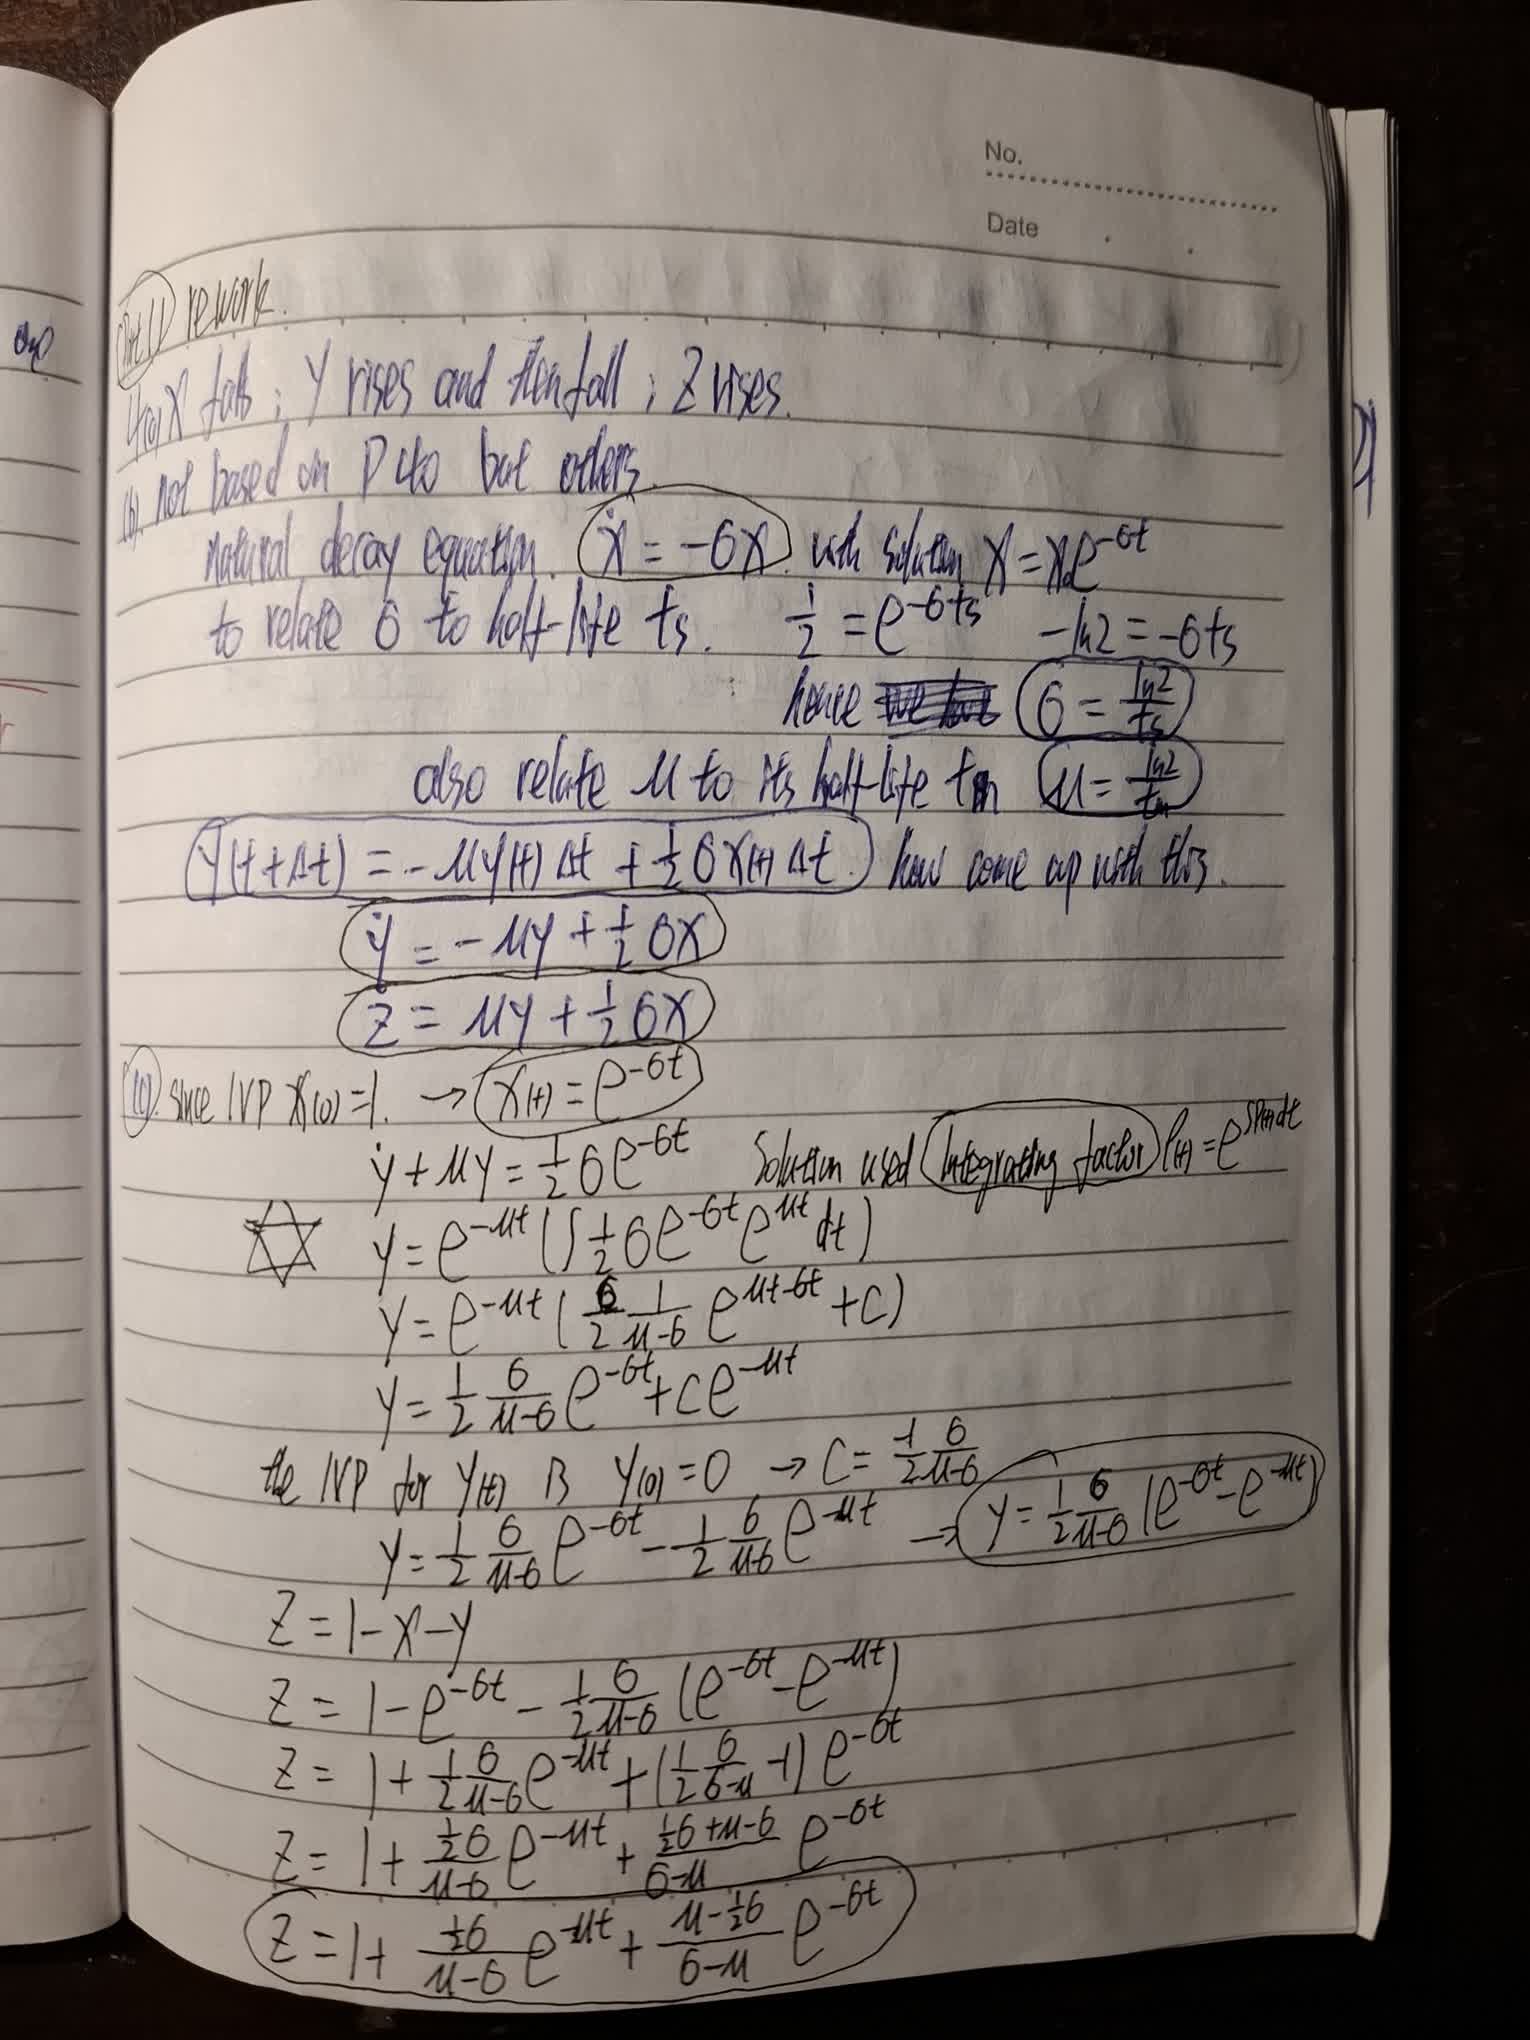 No.
Date
Part II rework.
4(a) X falls; Y rises and then fall; Z rises.
(b). not based on D to but others.
natural decay equation. ẋ = -σx. with solution x = x₀e^{-σt}
to relate σ to half-life ts. 1/2 = e^{-σts} -ln2 = -σts
hence σ = ln2/ts
also relate μ to its half-life tm μ = ln2/tm
y(t+Δt) = -μy(t)Δt + 1/2 σx(t)Δt. how come up with this.
ẏ = -μy + 1/2 σx
ż = μy + 1/2 σx
(c). Since IVP x(0) = 1. → x(t) = e^{-σt}
ẏ + μy = 1/2 σe^{-σt} Solution used Integrating factor ρ(t) = e^{∫P(t)dt}
y = e^{-μt} (∫ 1/2 σe^{-σt} e^{μt} dt)
y = e^{-μt} (σ/2 1/(μ-σ) e^{μt-σt} + c)
y = 1/2 σ/(μ-σ) e^{-σt} + ce^{-μt}
the IVP for y(t) is y(0) = 0 → c = -1/2 σ/(μ-σ)
y = 1/2 σ/(μ-σ) e^{-σt} - 1/2 σ/(μ-σ) e^{-μt} → y = 1/2 σ/(μ-σ) (e^{-σt} - e^{-μt})
z = 1-x-y
z = 1 - e^{-σt} - 1/2 σ/(μ-σ) (e^{-σt} - e^{-μt})
z = 1 + 1/2 σ/(μ-σ) e^{-μt} + (1/2 σ/(σ-μ) - 1) e^{-σt}
z = 1 + 1/2σ/(μ-σ) e^{-μt} + (1/2σ+μ-σ)/(σ-μ) e^{-σt}
z = 1 + 1/2σ/(μ-σ) e^{-μt} + (μ-1/2σ)/(σ-μ) e^{-σt}